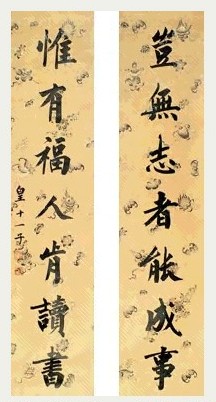 豈無志者能成事
惟有福人肯讀書
皇十一子